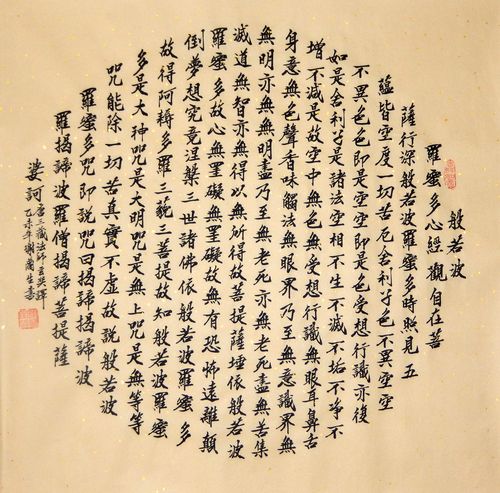 般若波
羅蜜多心經觀自在菩
薩行深般若波羅蜜多時照見五
蘊皆空度一切苦厄舍利子色不異空空
不異色色即是空空即是色受想行識亦復
如是舍利子是諸法空相不生不滅不垢不淨不
增不減是故空中無色無受想行識無眼耳鼻舌
身意無色聲香味觸法無眼界乃至無意識界無
無明亦無無明盡乃至無老死亦無老死盡無苦集
滅道無智亦無得以無所得故菩提薩埵依般若波
羅蜜多故心無罣礙無罣礙故無有恐怖遠離顛
倒夢想究竟涅槃三世諸佛依般若波羅蜜多
故得阿耨多羅三藐三菩提故知般若波羅蜜
多是大神咒是大明咒是無上咒是無等等
咒能除一切苦真實不虛故說般若波
羅蜜多咒即說咒曰揭諦揭諦波
羅揭諦波羅僧揭諦菩提薩
娑訶
唐三藏法師玄奘譯
乙未年謝生書